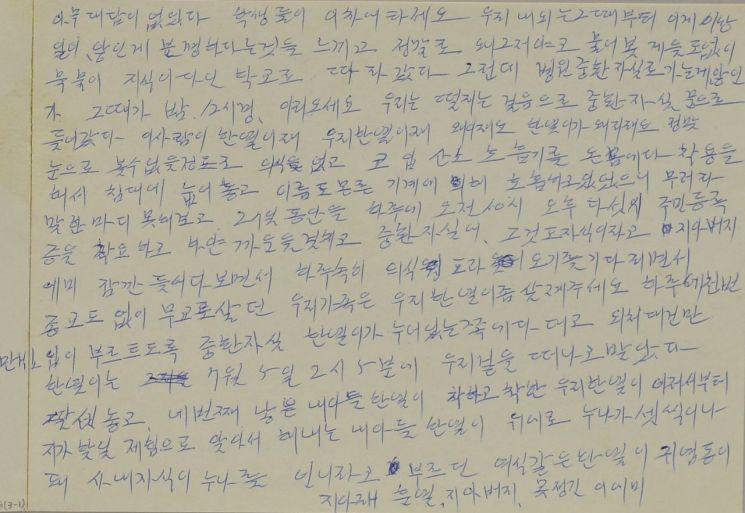 아무 대답이 없었다 학생들이 이차에 타세요 우리 내외는 그때부터 이게 이상
일이, 않인게 분명하다는것을 느끼고 정말로 왜 그저야고 물어볼 겨를도없이
묵묵이 지식이 다닌 학교로 따라 갔다 그런데 병원 중환자실로 가는게않인
가 그때가 밤 12시경, 이리오세요 우리는 떨리는 걸음으로 중환자실 문으로
들어갔다 이사람이 한열이재 우리한열이재 왜이래도 한열이가 왜이래요 정말
눈으로 볼수없을정도로 의식을 없고 코 입 산소 호흡기를 온몸에다 착용을
해서 침대에 눕어놓고 이름도모른 기계에 의해 호흡하고있었으니 무러라
말한마디 못해보고 27일 동안을 하루에 오전 10시 오후 다섯시 주민등록
증을 확요하고 하얀 까운을걸치고 중환자실에, 그것도자식이라고 지아버지
에미 잠깐 들여다보면서 하루속히 의식 도라 오기를기다리면서
종교도 없이 무교로살던 우리가족은 우리한열이좀살려주세요 하루에천번
만번 입이 부르트도록 중환자실 한열이가 누어있는쪽에다 대고 외쳐대건만
한열이는 7월 5일 2시 5분에 우리곁을 떠나고말았다
딸셋놓고, 네번째 낳은 내아들한열이 착하고 착한 우리한열이 어려서부터
지가 맡일 책임으로 알아서 해내는 내아들 한열이 위에로 누나가 셋씩이나
돼 사내자식이 누나를 언니라고 부르던 여식같은한열이 귀염둥이
지아래 훈열, 지아버지, 못생긴 이에미